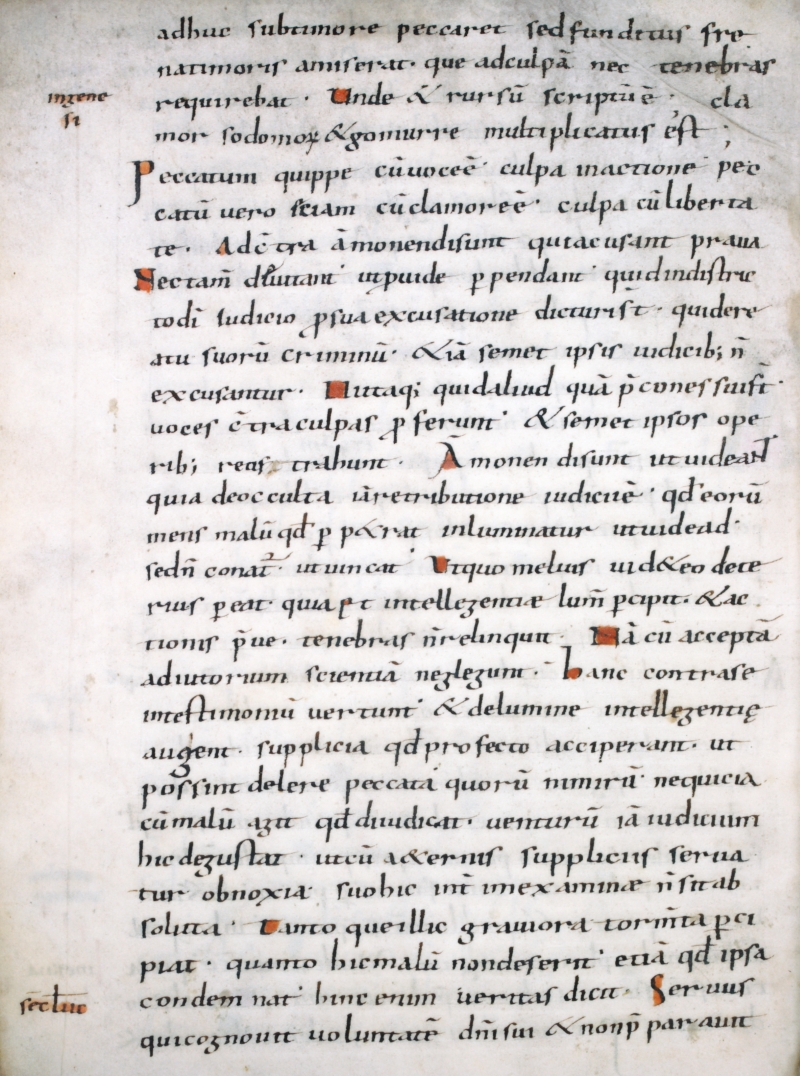 adhuc subtimore peccaret sed funditus fre
natimoris amiserat. que adculpā nec tenebras
ingene
si
requirebat. Unde & rursū scriptū ē. cla
mor sodomoꝝ & gomurre multiplicatus est;
Peccatum quippe cūvoceē. culpa inactione pec
catū vero &iam cūclamoreē. culpa cūliberta
te. Adc̄tra āmonendisunt quiacusant praua
Nectam̄ deuitant. utpuide ꝑpendant quidindistric
todī iudicio ꝓsua excusatione dicturist. quidere
atu suorū criminū. &iā semet ipsis iudicib; n̄
excusantur. Nutaq; quidaliud quā p̄cones suist̄.
voces c̄traculpas ꝓferunt. & semet ipsos ope
rib; reos trahunt. Āmonendisunt utuideant
quia deocculta iāretributione iudiciiē. qđ eorū
mens malū qđ ꝑp&rat inluminatur utuidead.
sedn̄ conat᷑. utuincat. Utquo melius uid& eo dete
rius ꝑeat. quia & intellegentiæ lum̄ ꝑcipit. & ac
tionis p̄ue. tenebras n̄relinquit. Nā cū acceptā
adiutorium scientiā neglegunt. hanc contrase
intestimoniū vertunt. & delumine intellegentię
augent. supplicia qđ profecto acciperant. ut
possint delere peccata quorū nimirū nequicia
cūmalū agit qđ diiudicat. venturū iā iudicium
hic degustat. utcū a&ernis suppliciis serua
tur obnoxia. suohic int̄ imexaminæ n̄ sit ab
soluta. Tanto queillic graviora torm̄ta ꝑci
piat. quanto hicmalū nondeserit. etiā qđ ipsa
condemnat. hinc enim veritas dicit. Seruus
sec̄luc̄
quicognouit voluntatē dn̄isui & nonp̄parauit